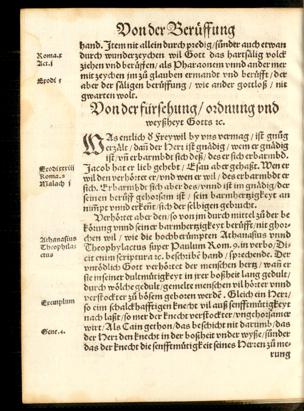 Von der Berüffung
hand. Item nit allein durch predig/ sünder auch etwan
durch wunderzeychen wil Gott das hartsälig volck
Roma.x
ziehen vnd berüffen/ als Pharaonen vnnd ander mer
Act.j
mit zeychen im zů glauben ermandt vnd berüfft/ der
Exodi
aber der säligen berüffung/ wie ander gottloß/ nit
gwarten wolt.
Von der fürsehung/ ordnung vnd
weyßheyt Gotts ec.
WAs entlich d Freywil by vns vermag/ ist gnůg
erzält/ dañ der Herr ist gnädig/ wem er gnädig
ist/ vñ erbarmbd sich deß/ des er sich erbarmbd.
Exodi xxxiij
Jacob hat er lieb gehebt/ Esau aber gehaßt. Wen er
Roma.9
wil den verhörtet er/ vnd wem er wil/ des erbarmbd er
Malach j
sich. Erbarmbd sich aber des/ vnnd ist im gnädig/ der
seinen berüff gehorsam ist/ sein barmhertzigkeyt an
nimpt vnnd erkent/ sich der selbigen gebrucht.
Verhörtet aber den/ so von im durch mittel zů der be
körung vnnd seiner barmhertzigkeyt berüfft/ nit ghor-
chen wil/ wie die hochberümpten Athanasius vnnd
Athanasius
Theophylactus super Paulum Rom.9. in verbo/ Di-
Theophila-
ctus
cit enim scriptura ec. beschribe hand/ sprechende. Der
vntödlich Gott verhörtet der menschen hertz/ wañ er
sie in seiner dulmütigkeyt in irer boßheit lang geduldt/
durch wölche gedult/ gemelte menschen vil hörter vnnd
verstockter zů bösem geboren werdē. Gleich ein Herr/
Exemplum
so eim schalckhafftigen knecht vil auß senfftmütigkeyt
nach laßt/ so mer der knecht verstockter/ vngehorsamer
wirt/ Als Cain gethon/ das beschicht nit darumb/ das
Gene.4.
der Herr den knecht in der boßheit vnder wyße/ sünder
das der knecht die senfftmütigkeit seines Herren zů me-
rung